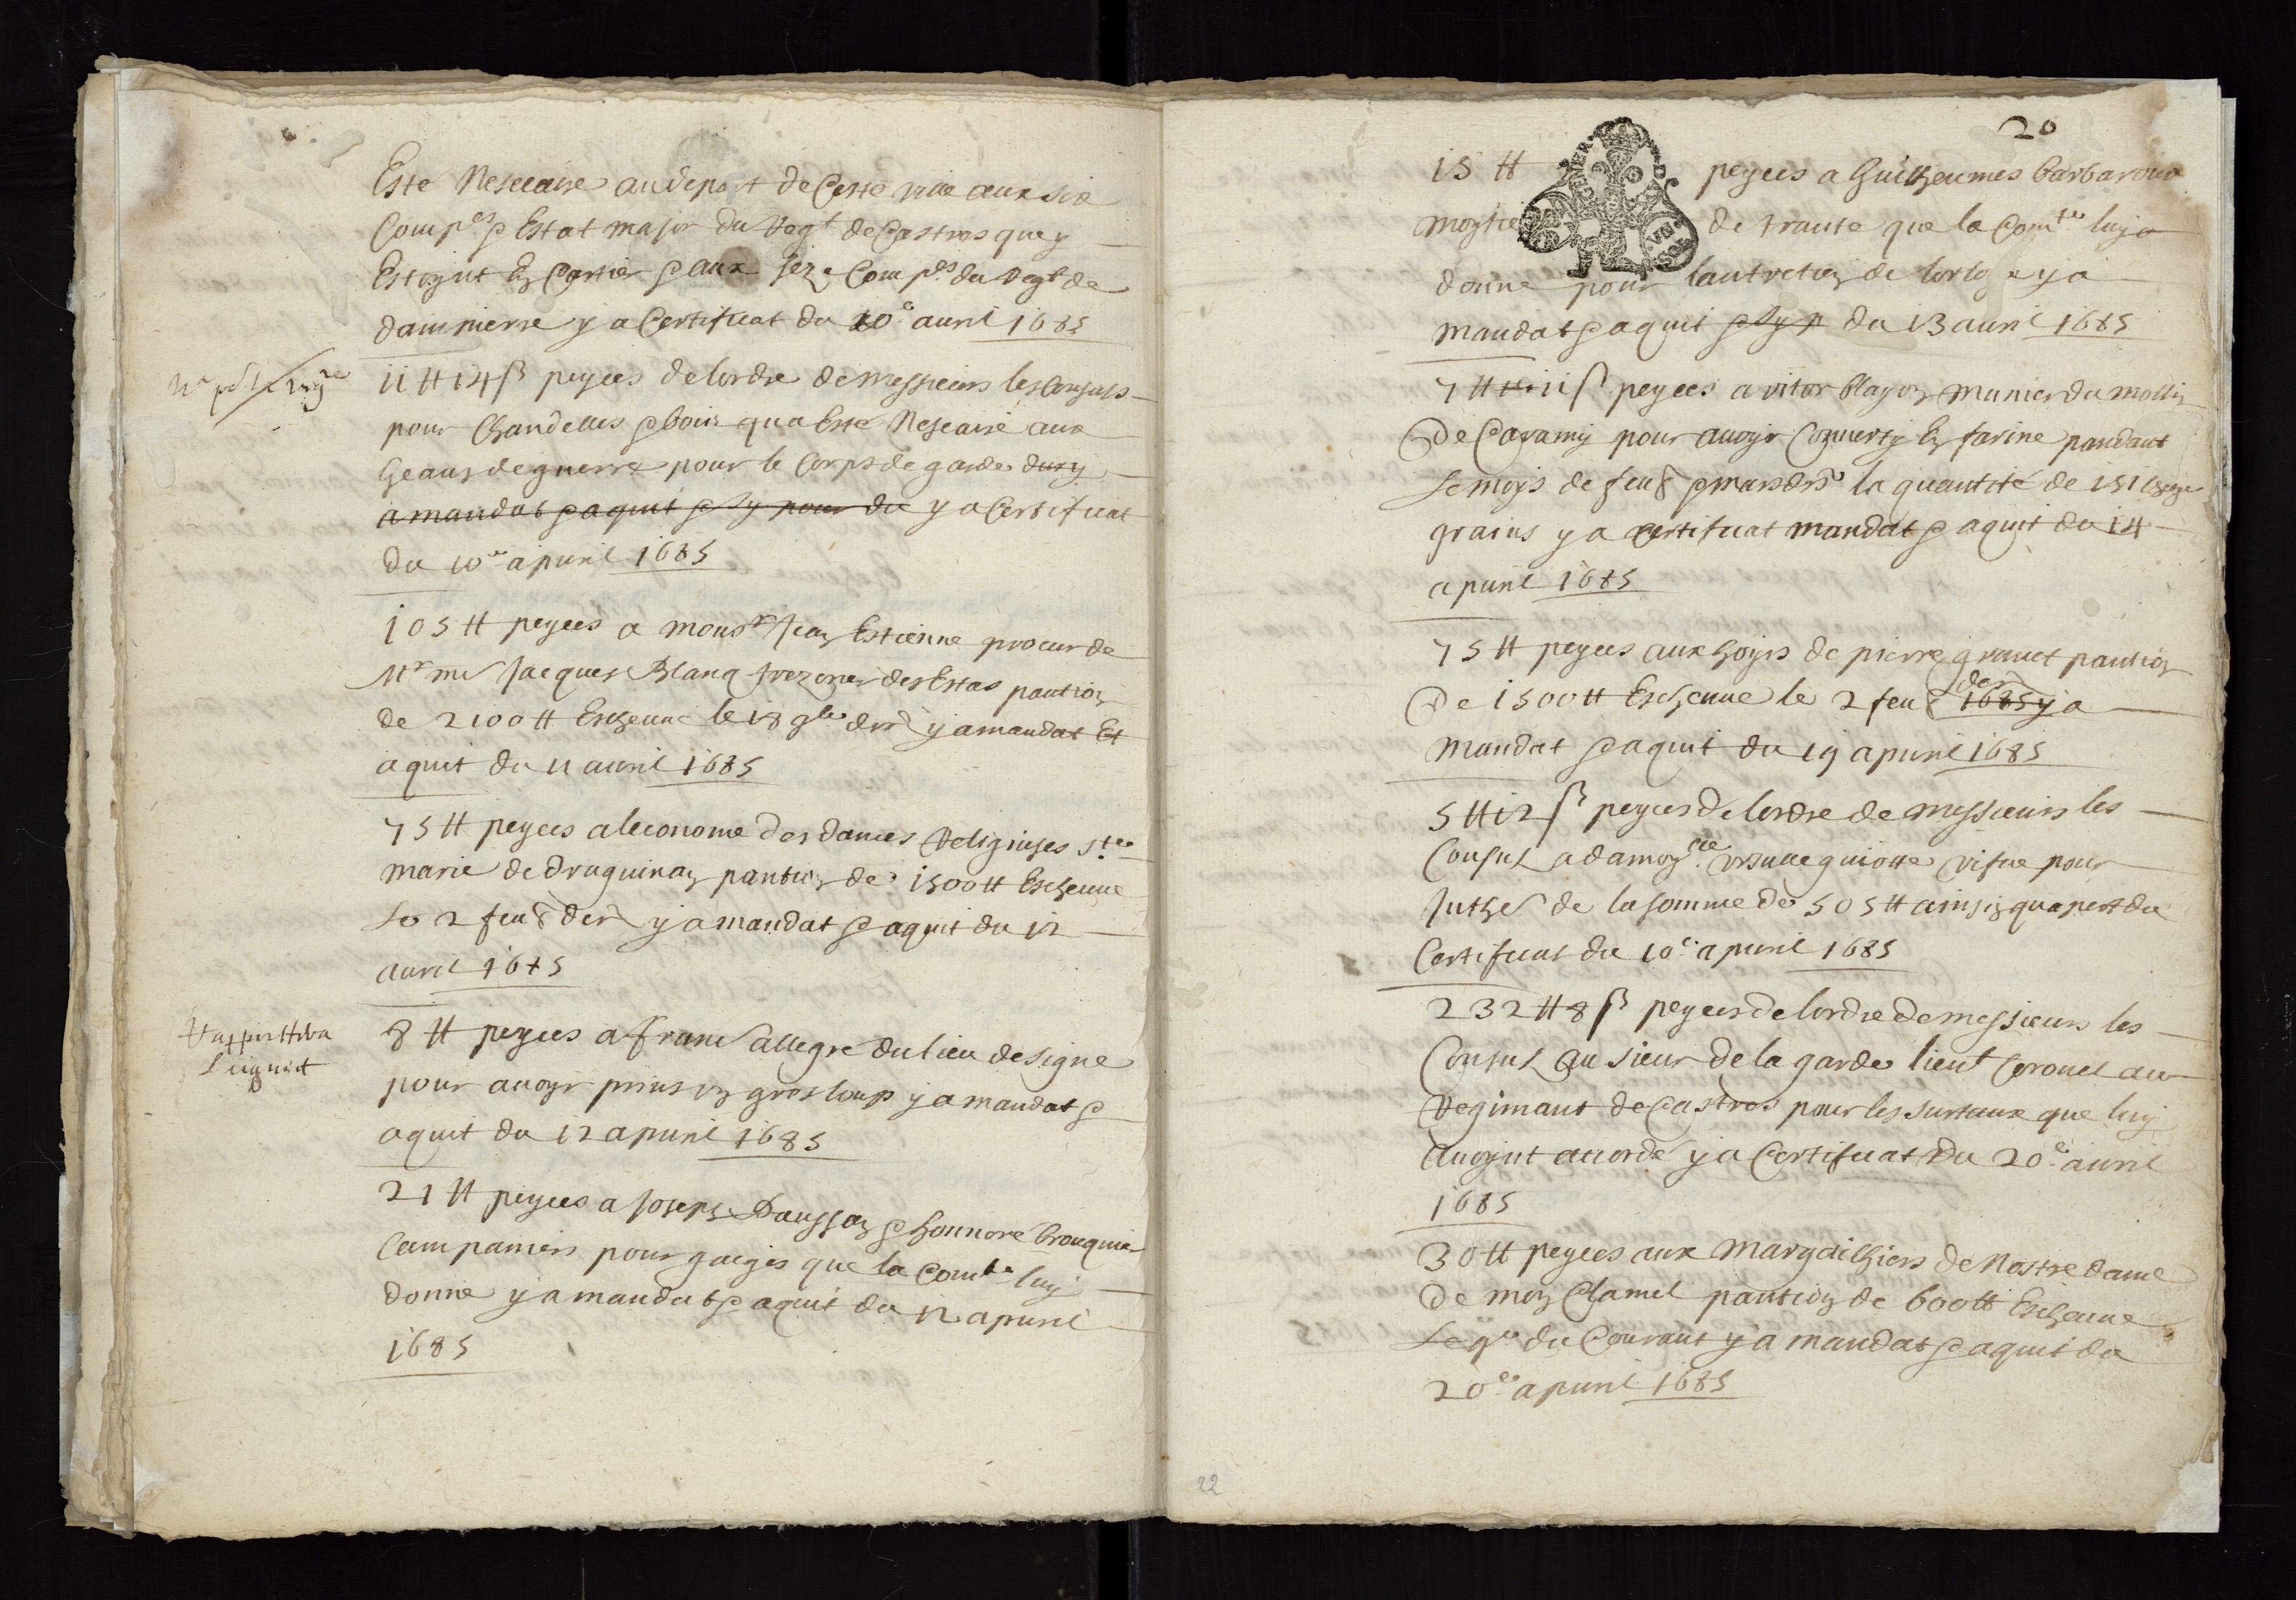 Esté Neseccaire au depart de Ceste ville aux six
Comp.es & Estat major du Reg.t de Castres quey
Estoynt En Cartier & aux seze Comp.es du Regt de
dampierre y a Certificat du 10.e auril 1685
11 tt 14 ß peyees de lordre de messieurs les Consuls
pour Chandelles & bois qua Esté Neseaire aux
Geans de guerre pour le Corps de garde duxy
a mandat & aquit & sy pour du y a Certificat
du 10.e apuril 1685
105 tt peyees a mons.r Jean Estienne procur de
Mr me Jacques Blanq trezorier des Estas pantion
de 2100 tt Escheue le 18 9bre der y a mandat Et
aquit du 11 auril 1685
75 tt peyees a leconome des dames Religieuses s.te
marie de draguinan pantion de 1500 tt Escheue
Le 2 feur der y a mandat & aquit du 12
auril 1685
Luignit
8 tt peyees a Frans allegre du lieu de Signe
pour auoyr prins vn gros loup y a mandat &
aquit du 12 apuril 1685
21 tt peyees a Joseph Daussan & honnore brouquier
Campaniers pour guages que la Com.te luy
donne y a mandat & aquit du 12 apuril
1685
20
15 tt peyees a Guilheumes barbaroux
moytie de trante que la Com.te luy a
donne pour lantretien de lorloge y a
mandat & aquit & sy p du 13 auril 1685
7 tt 11 ß peyees a vitor blayon munier du mollin
De Caramy pour auoyr Conuerty En farine pandant
Le moys de feur & mars der la quantité de 151
grains y a certificat mandat & aquit du 14
apuril 1685
75 tt peyees aux hoyrs de pierre granet pantion
De 1500 tt Escheue le 2 feur 1685 der y a
mandat & aquit du 19 apuril 1685
5 tt 12 ß peyees de lordre de messieurs les
Consuls a damoy.lle vrsulle guiotte visue pour
Juthes de la somme de 505 tt ainsin quapert du
Certificat du 10.e apuril 1685
232 tt 8 ß peyees de lordre de messieurs les
Consuls au sieur de la garde lieut Coronel au
Regimant de Castres pour les surtaux que luy
auoynt acorde y a Certificat du 20.e auril
1685
30 tt peyees aux margailhiers de Nostre dame
De mon Clamel pantion de 600 tt Escheue
Le 9.e du Courant y a mandat & aquit du
20.e apuril 1685
22